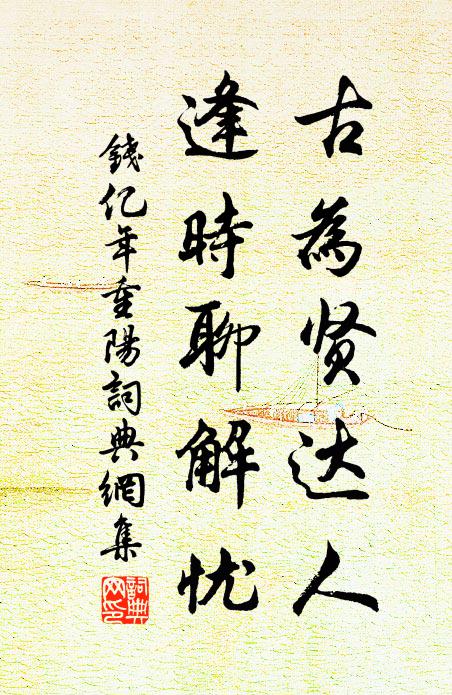 古為贤达人
逢時聊解忧
錢亿年重陽詞典網集
詞典网印